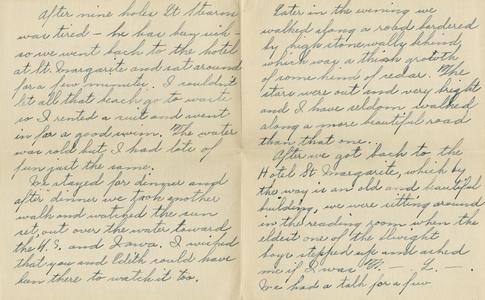 After nine holes Lt Stearn
was tired — he has been sick —
so we went back to the hotel
at St. Margarite and sat around
for a few minutes. I couldn't
let all that beach go to waste
so I rented a suit and went
in for a good swim. The water
was cold but I had lots of
fun just the same.
We stayed for dinner and
after dinner we took another
walk and watched the sun
set, out over the water toward
the U.S. and Iowa. I wished
that you and Edith could have
been there to watch it too.
Later in the evening we
walked along a road bordered
by high stone walls behind
which was a thick growth
of some kind of cedar. The
stars were out and very bright
and I have seldom walked
along a more beautiful road
than that one.
After we got back to the
Hotel St Margarite, which by
the way is an old and beautiful
building, we were sitting around
in the reading room when the
eldest one of the Dwight
boys stepped up and asked
me if I was — L. —.
We had a talk for a few